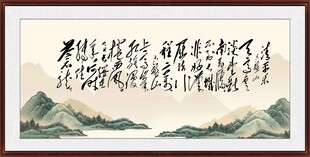 清平乐
六盘山
天高云
淡望断
南飞雁
不到长城
非好汉
屈指行
程二万
六盘山
上高峰
红旗漫
卷西风
今日长缨
在手何时
缚住
苍龙